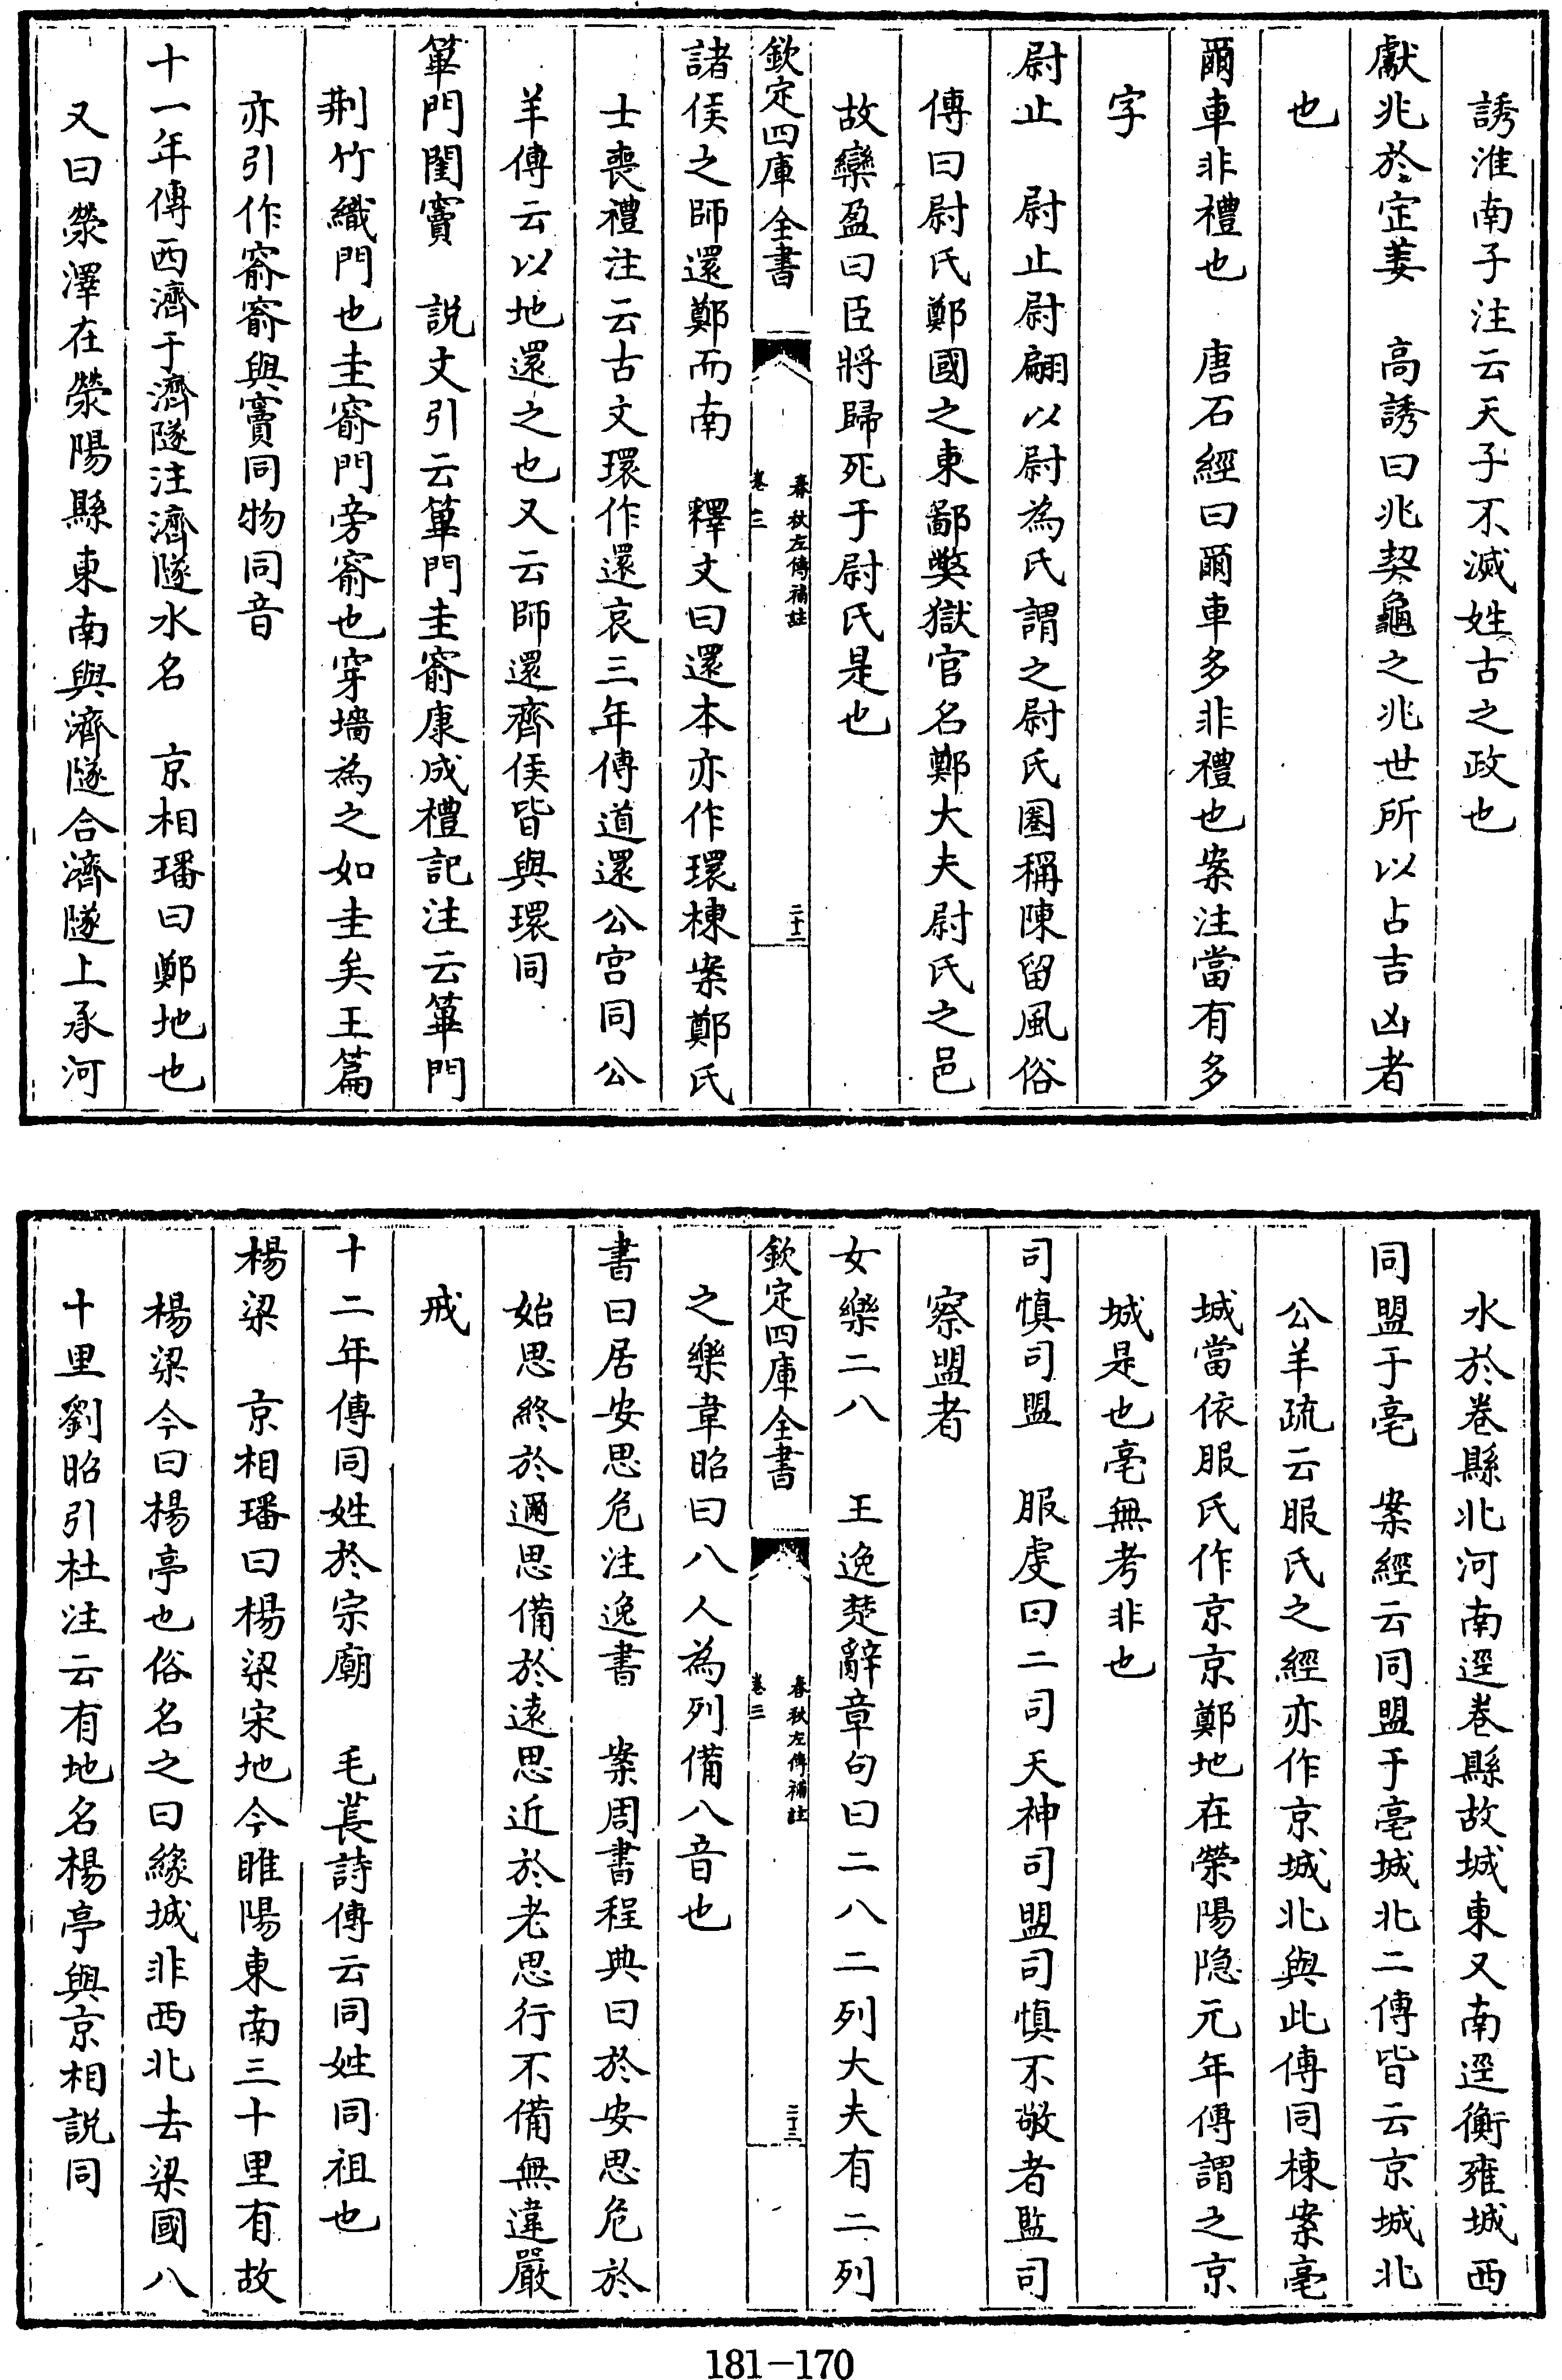 誘淮南子注云天子不滅姓古之政也
獻兆於定姜　高誘曰兆契龜之兆世所以占吉凶者
也
爾車非禮也　唐石經曰爾車多非禮也案注當有多
字
尉止　尉止尉翩以尉為氏謂之尉氏圏稱陳留風俗
傳曰尉氏鄭國之東鄙獘獄官名鄭大夫尉氏之邑
故欒盈曰臣將歸死于尉氏是也
欽定四庫全書
春秋左傳補註
卷三
二十二
諸侯之師還鄭而南　釋文曰還本亦作環棟案鄭氏
士喪禮注云古文環作還哀三年傳道還公宫同公
羊傳云以地還之也又云師還齊侯皆與環同
篳門閨竇　説文引云篳門圭窬康成禮記注云篳門
荆竹織門也圭窬門旁窬也穿墻為之如圭矣王篇
亦引作窬窬與竇同物同音
十一年傳西濟于濟隧注濟隧水名　京相璠曰鄭地也
又曰滎澤在滎陽縣東南與濟隧合濟隧上承河
水於卷縣北河南逕卷縣故城東又南逕衡雍城西
同盟于亳　案經云同盟于亳城北二傳皆云京城北
公羊疏云服氏之經亦作京城北與此傳同棟案亳
城當依服氏作京京鄭地在滎陽隐元年傳謂之京
城是也亳無考非也
司慎司盟　服虔曰二司天神司盟司慎不敬者監司
察盟者
女樂二八　王逸楚辭章句曰二八二列大夫有二列
欽定四庫全書
春秋左傳補註
卷三
二十三
之樂韋昭曰八人為列備八音也
書曰居安思危注逸書　案周書程典曰於安思危於
始思終於邇思備於遠思近於老思行不備無違嚴
戒
十二年傳同姓於宗廟　毛萇詩傳云同姓同祖也
楊梁　京相璠曰楊梁宋地今睢陽東南三十里有故
楊梁今曰楊亭也俗名之曰緣城非西北去梁國八
十里劉昭引杜注云有地名楊亭與京相説同
181-170